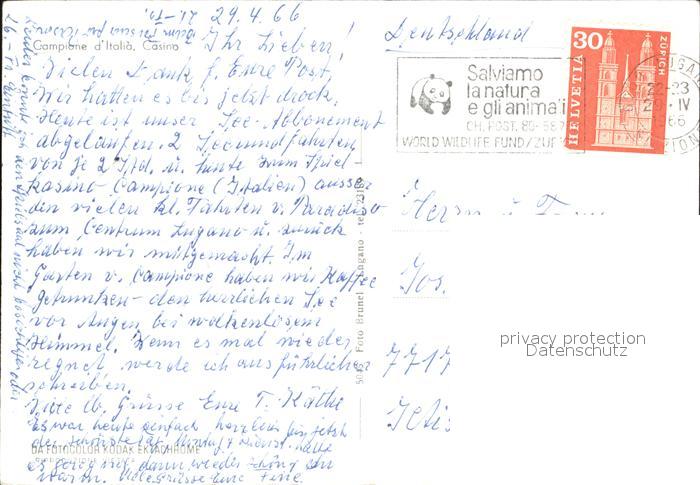 29.4.66
Campione d'Italia, Casino
Ihr Lieben!
Vielen Dank f. Eure Post,
Wir hatten es bis jetzt
Heute ist unser See-Abonnement
abgelaufen. 2 Seerundfahrten
von je 2 Std. u. heute zum Spiel
kasino-Campione (Italien) ausser
den vielen kl. Fahrten v. Paradiso
zum Centrum Lugano u. zurück
haben wir mitgemacht. Im
Garten v. Campione haben wir Kaffee
getrunken - den herrlichen See
vor Augen bei wolkenlosem
Himmel. Wenn es mal wieder
regnet, werde ich ausführlicher
schreiben.
Viele lb. Grüsse Eure T. Käthe
Es war heute einfach herrlich bis jetzt
der schönste Tag. Montag + Dienst. hatte
es geregnet, dann wieder schön an
warm. Viele Grüsse Eure
DA FOTOCOLOR KODAK EKTACHROME
Foto Brunel Lugano - tel.
Deutschland
Salviamo
la natura
e gli anima'i
CH. POST. 80-
WORLD WILDLIFE FUND/ZUR
30
HELVETIA
ZÜRICH
22-23
29. IV
1966
Herrn u.
Jos.
7717
privacy protection
Datenschutz